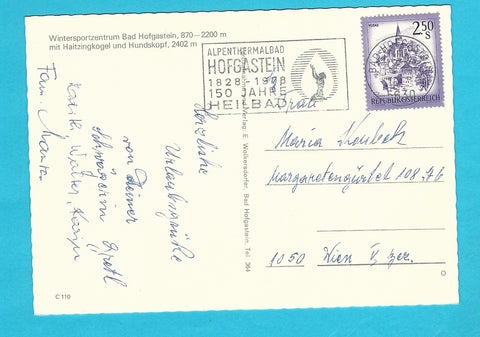 Wintersportzentrum Bad Hofgastein, 870–2200 m
mit Haitzingkogel und Hundskopf, 2402 m
ALPENTHERMALBAD
HOFGASTEIN
1828-1978
150 JAHRE
HEILBAD
2.50
S
MURAU
REPUBLIK ÖSTERREICH
5630
Herzliche
Urlaubsgrüße
von Deiner
Schwägerin Gretl
Walter,
Fam.
Verlag: E. Wolkersdorfer, Bad Hofgastein, Tel. 364
Maria
Margaretengürtel 108
1050 Wien V,
C 110